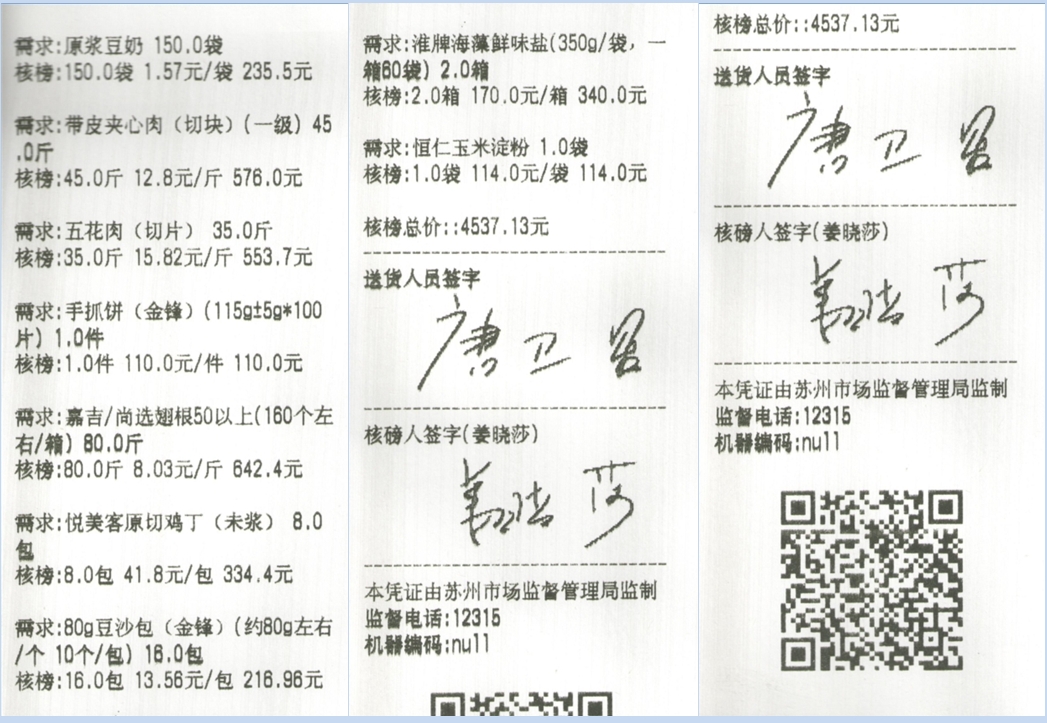 需求:原浆豆奶 150.0袋
核榜:150.0袋 1.57元/袋 235.5元
需求:带皮夹心肉（切块）(一级) 45
.0斤
核榜:45.0斤 12.8元/斤 576.0元
需求:五花肉（切片） 35.0斤
核榜:35.0斤 15.82元/斤 553.7元
需求:手抓饼（金锋）(115g±5g*100
片) 1.0件
核榜:1.0件 110.0元/件 110.0元
需求:嘉吉/尚选翅根50以上(160个左
右/箱) 80.0斤
核榜:80.0斤 8.03元/斤 642.4元
需求:悦美客原切鸡丁（未浆） 8.0
包
核榜:8.0包 41.8元/包 334.4元
需求:80g豆沙包（金锋）(约80g左右
/个 10个/包) 16.0包
核榜:16.0包 13.56元/包 216.96元
需求:淮牌海藻鲜味盐(350g/袋，一
箱60袋) 2.0箱
核榜:2.0箱 170.0元/箱 340.0元
需求:恒仁玉米淀粉 1.0袋
核榜:1.0袋 114.0元/袋 114.0元
核榜总价::4537.13元
送货人员签字
唐卫
核磅人签字(姜晓莎)
姜晓莎
本凭证由苏州市场监督管理局监制
监督电话:12315
机器编码:null
核榜总价::4537.13元
送货人员签字
唐卫
核磅人签字(姜晓莎)
姜晓莎
本凭证由苏州市场监督管理局监制
监督电话:12315
机器编码:null